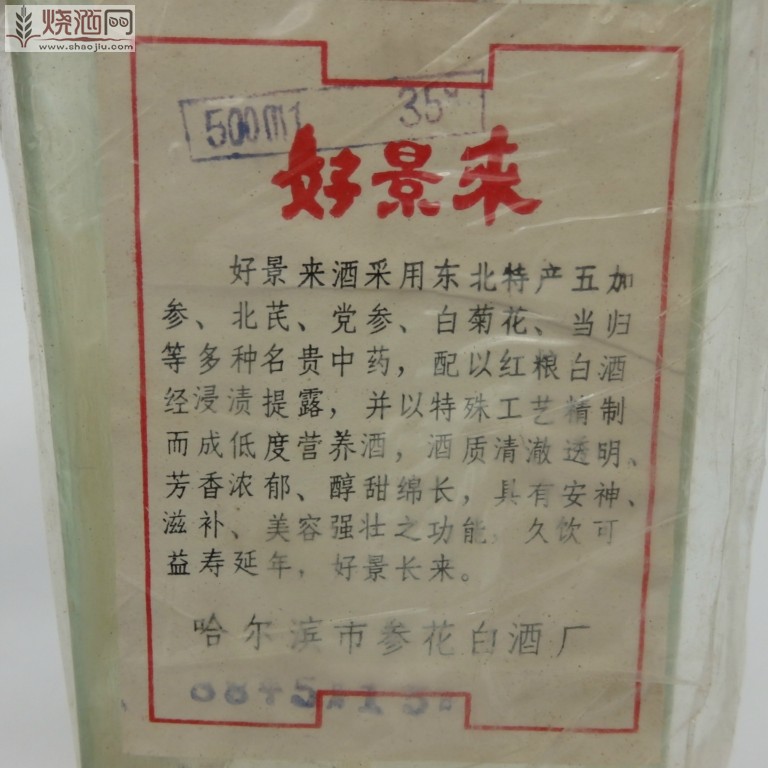 烧酒网
www.shaojiu.com
500ml 35°
好景来
好景来酒采用东北特产五加
参、北芪、党参、白菊花、当归
等多种名贵中药，配以红粮白酒
经浸渍提露，并以特殊工艺精制
而成低度营养酒，酒质清澈透明、
芳香浓郁、醇甜绵长，具有安神、
滋补、美容强壮之功能，久饮可
益寿延年，好景长来。
哈尔滨市参花白酒厂